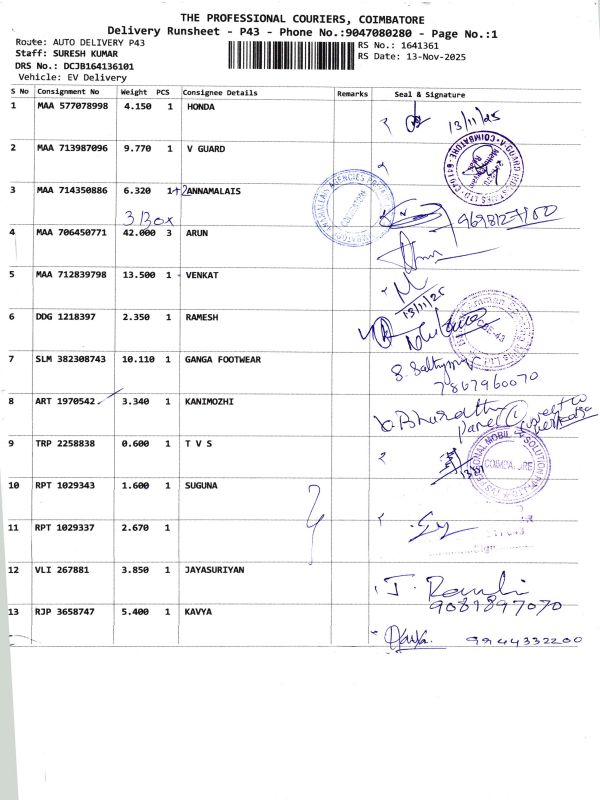 THE PROFESSIONAL COURIERS, COIMBATORE
Delivery Runsheet - P43 - Phone No.:9047080280 - Page No.:1
Route: AUTO DELIVERY P43
Staff: SURESH KUMAR
DRS No.: DCJB164136101
Vehicle: EV Delivery
RS No.: 1641361
RS Date: 13-Nov-2025
S No Consignment No Weight PCS Consignee Details Remarks Seal & Signature
1 MAA 577078998 4.150 1 HONDA 13/11/25
2 MAA 713987096 9.770 1 V GUARD
3 MAA 714350886 6.320 1+2 ANNAMALAIS
3 Box 9698127100
4 MAA 706450771 42.000 3 ARUN
5 MAA 712839798 13.500 1 VENKAT
13/11/25
6 DDG 1218397 2.350 1 RAMESH
7 SLM 382308743 10.110 1 GANGA FOOTWEAR
7867960070
8 ART 1970542 3.340 1 KANIMOZHI
9 TRP 2258838 0.600 1 T V S
COIMBATORE
10 RPT 1029343 1.600 1 SUGUNA
11 RPT 1029337 2.670 1
12 VLI 267881 3.850 1 JAYASURIYAN
9081897070
13 RJP 3658747 5.400 1 KAVYA
9944332200